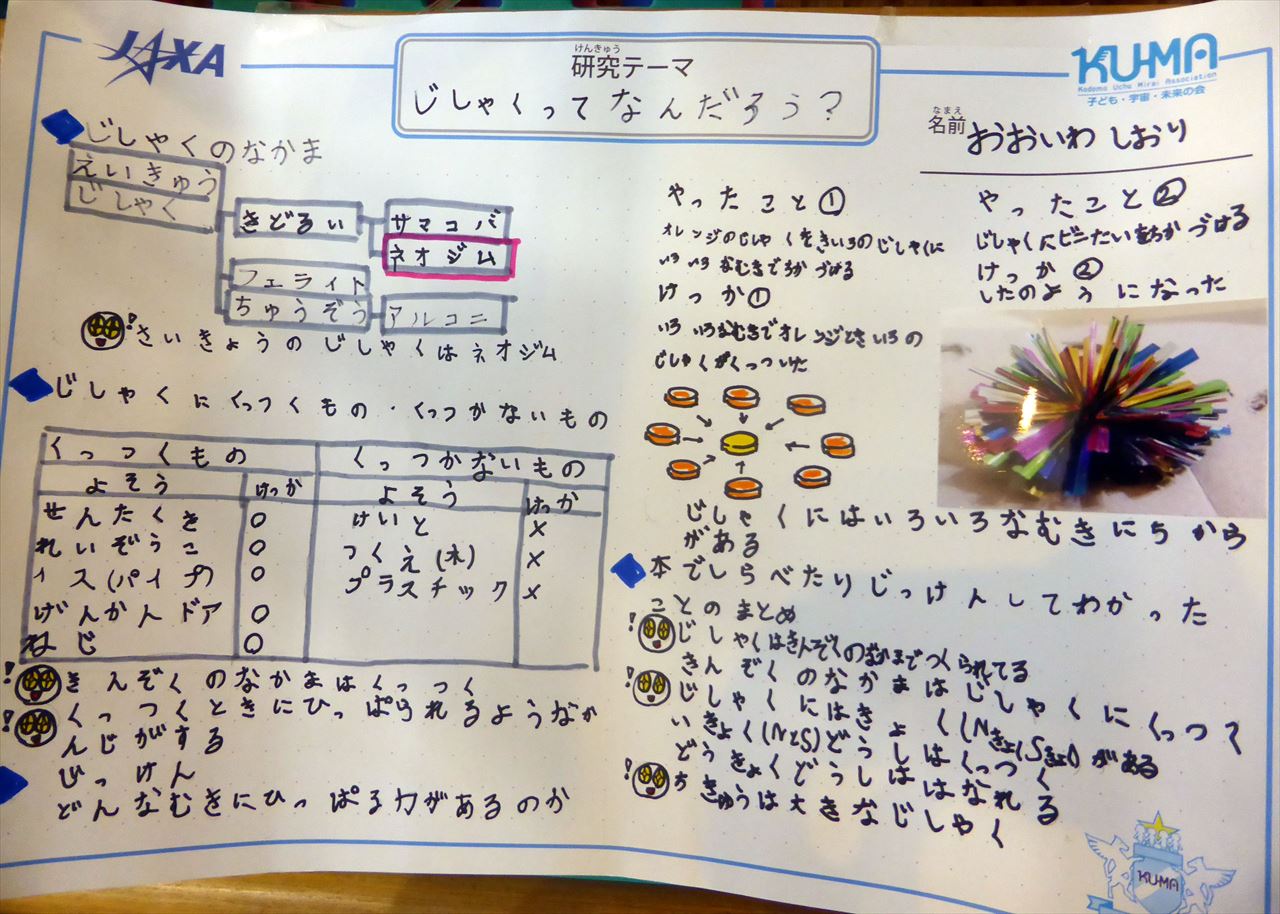 JAXA
けんきゅう
研究テーマ
じしゃくってなんだろう？
KU-MA
Kodomo Uchu Mirai Association
子ども・宇宙・未来の会
なまえ
名前 おおいわ しおり
じしゃくのなかま
えいきゅう
じしゃく
きどるい
サマコバ
ネオジム
フェライト
ちゅうぞう
アルコニ
! さいきょうのじしゃくはネオジム
じしゃくにくっつくもの・くっつかないもの
くっつくもの くっつかないもの
よそう けっか よそう けっか
せんたくき ○ けいと ×
れいぞうこ ○ つくえ(木) ×
イス(パイプ) ○ プラスチック ×
げんかんドア ○
ねじ ○
! きんぞくのなかまはくっつく
! くっつくときにひっぱられるようなか
んじがする
じっけん
どんなむきにひっぱる力があるのか
やったこと①
オレンジのじしゃくをきいろのじしゃくに
いろいろなむきでちかづける
けっか①
いろいろなむきでオレンジときいろの
じしゃくがくっついた
やったこと②
じしゃくにビニたいをちかづける
けっか②
したのようになった
じしゃくにはいろいろなむきにちから
がある
本でしらべたりじっけんしてわかった
ことのまとめ
! じしゃくはきんぞくのなかまでつくられてる
きんぞくのなかまはじしゃくにくっつく
! じしゃくにはきょく(NきょくSきょく)がある
いきょく(NとS)どうしはくっつく
どうきょくどうしははなれる
! ちきゅうは大きなじしゃく
KU-MA